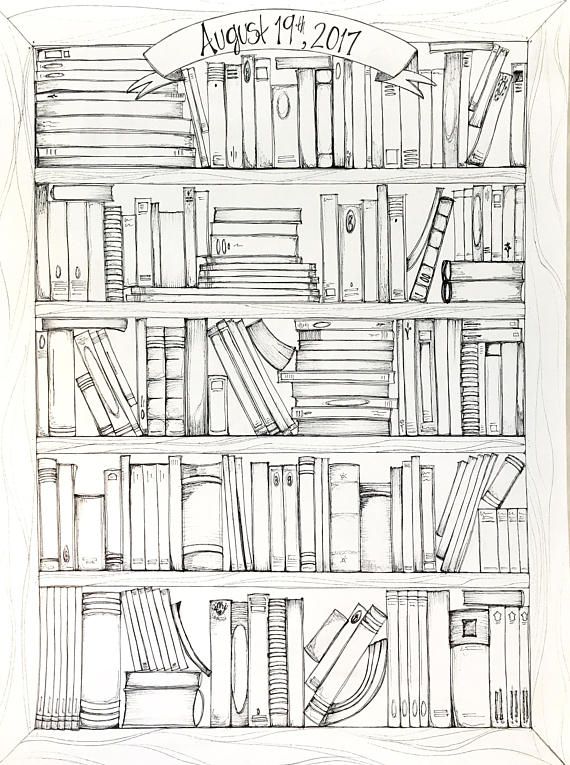 August 19th, 2017